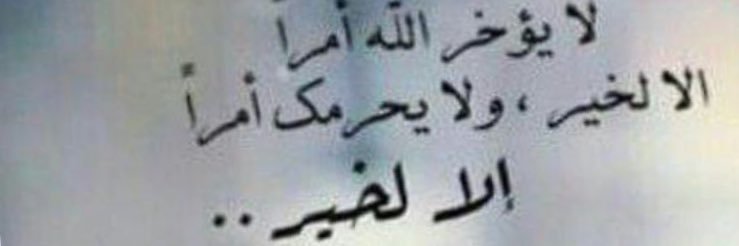 لا يؤخر الله أمراً
الا لخير ، ولا يحرمك أمراً
إلا لخير ..